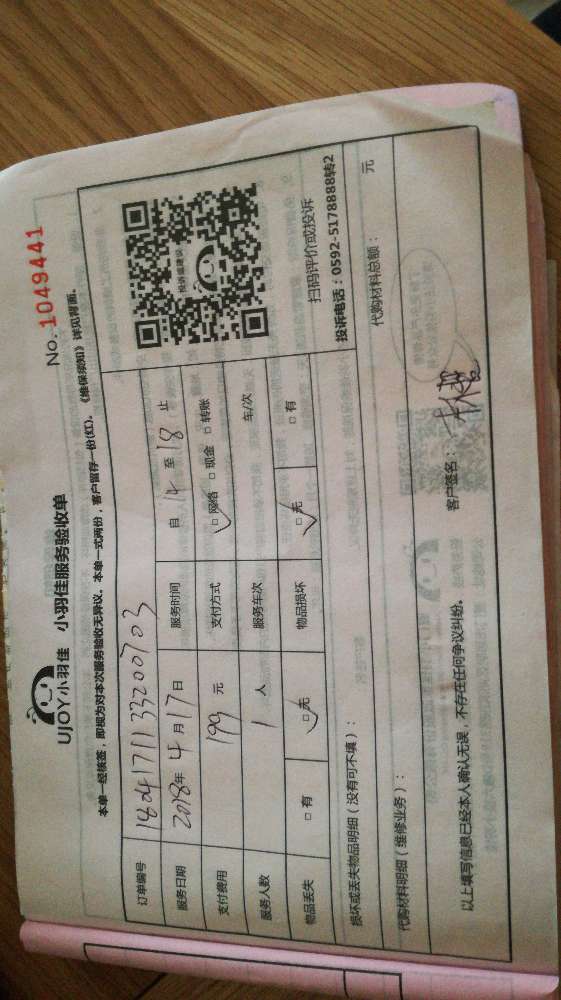 UJOY小羽佳 小羽佳服务验收单
No. 1049441
本单一经核签，即视为对本次服务验收无异议。本单一式两份，客户留存一份(红)。《维保须知》详见背面。
订单编号 1804171133200703
服务日期 2018年 4月17日 服务时间 自 14 至 18 止
支付费用 199 元 支付方式 ☑网络 □现金 □转账
服务人数 1 人 服务车次 车/次
物品丢失 □有 ☑无 物品损坏 ☑无 □有
扫码评价或投诉
投诉电话：0592-5178888转2
损坏或丢失物品明细（没有可不填）：
代购材料明细（维修业务）： 代购材料总额： 元
以上填写信息已经本人确认无误，不存在任何争议纠纷。 客户签名：